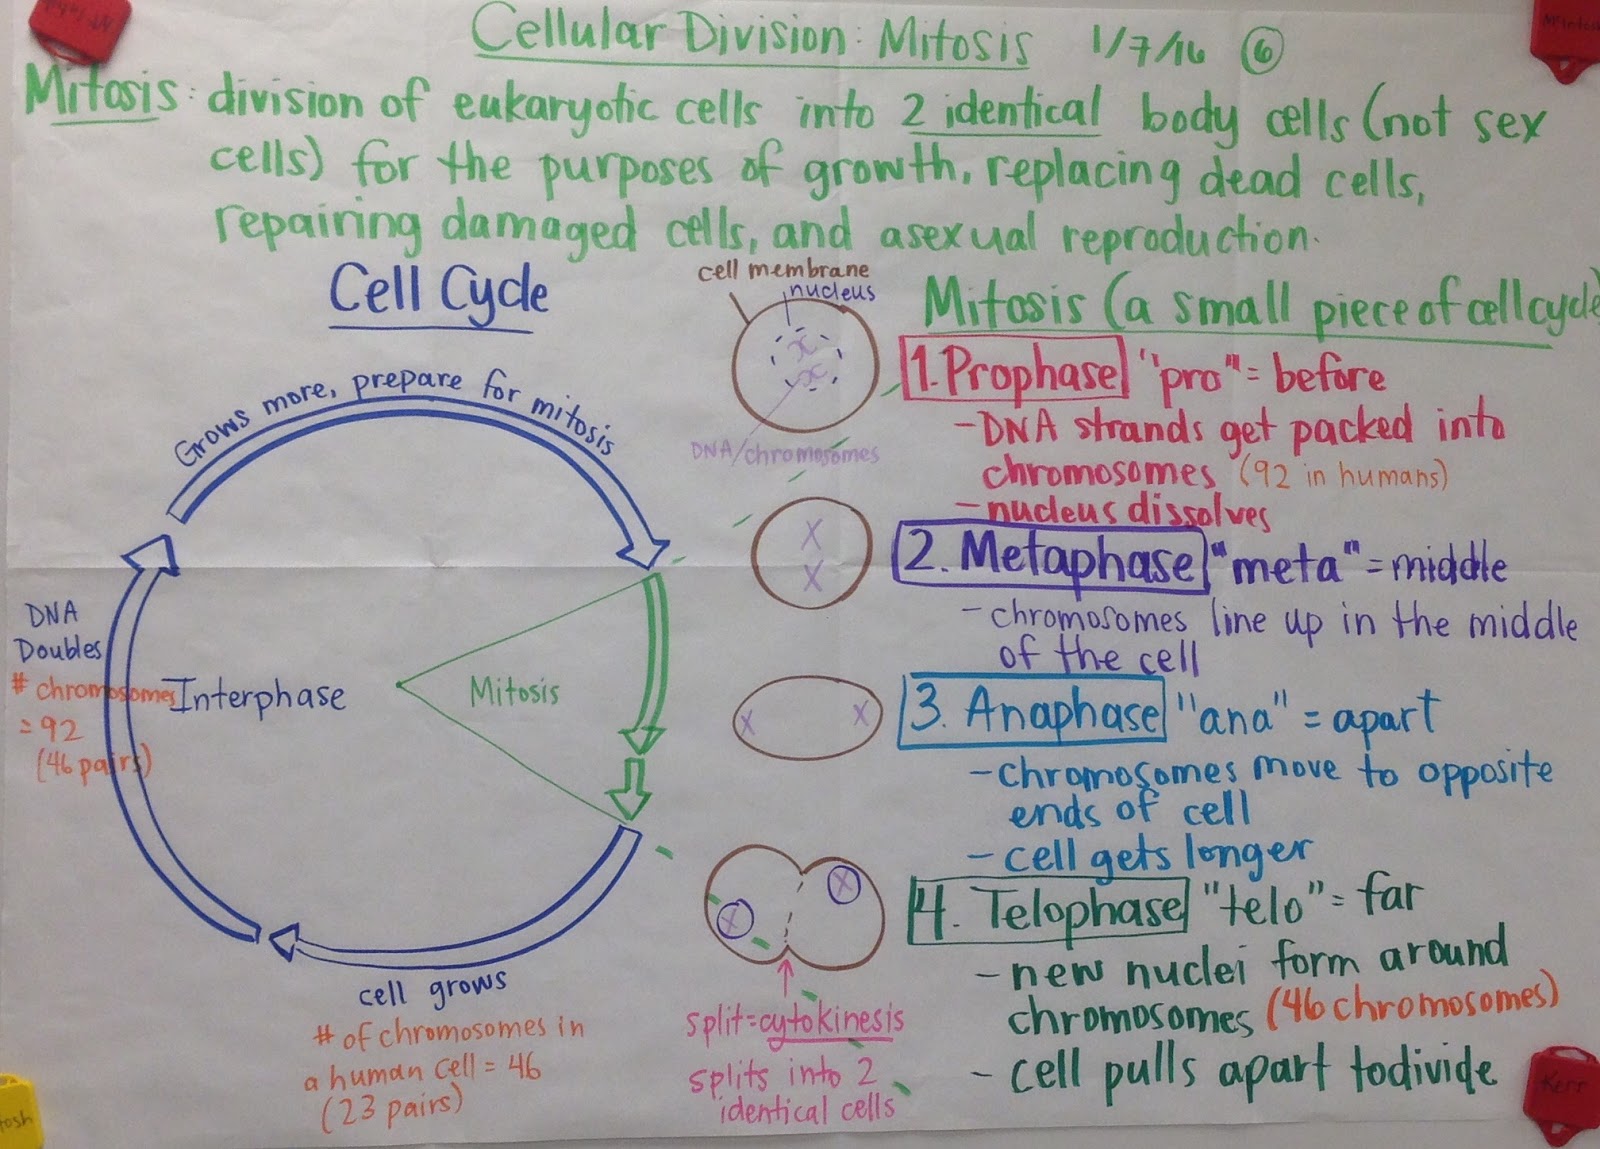 Cellular Division: Mitosis 1/7/16 6
Mitosis: division of eukaryotic cells into 2 identical body cells (not sex
cells) for the purposes of growth, replacing dead cells,
repairing damaged cells, and asexual reproduction.
Cell Cycle
Grows more, prepare for mitosis
DNA
Doubles
# chromosomes
= 92
(46 pairs)
Interphase
Mitosis
cell grows
# of chromosomes in
a human cell = 46
(23 pairs)
cell membrane
nucleus
DNA/chromosomes
split=cytokinesis
splits into 2
identical cells
Mitosis (a small piece of cell cycle)
1. Prophase "pro" = before
- DNA strands get packed into
chromosomes (92 in humans)
- nucleus dissolves
2. Metaphase "meta" = middle
- chromosomes line up in the middle
of the cell
3. Anaphase "ana" = apart
- chromosomes move to opposite
ends of cell
- cell gets longer
4. Telophase "telo" = far
- new nuclei form around
chromosomes (46 chromosomes)
- cell pulls apart to divide
McIntosh
Kerr
tosh